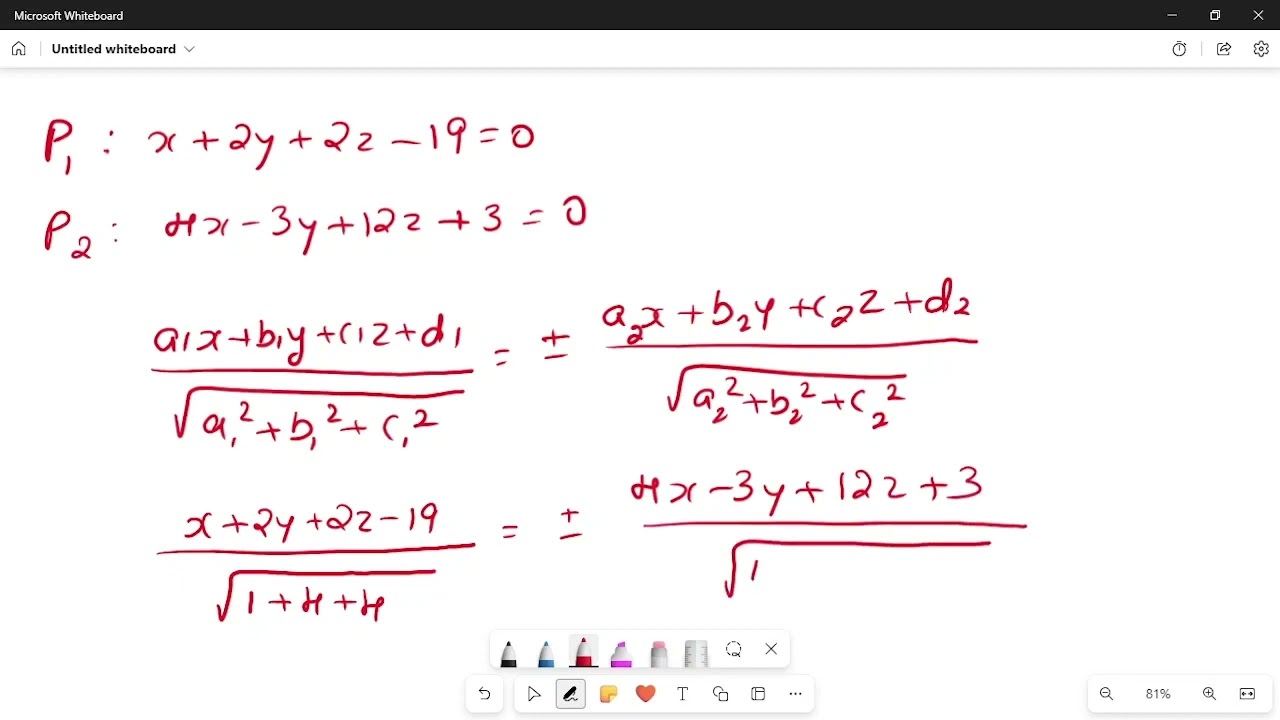 Microsoft Whiteboard
Untitled whiteboard
P₁ : x + 2y + 2z - 19 = 0
P₂ : 4x - 3y + 12z + 3 = 0
a₁x + b₁y + c₁z + d₁ / √(a₁² + b₁² + c₁²) = ± a₂x + b₂y + c₂z + d₂ / √(a₂² + b₂² + c₂²)
x + 2y + 2z - 19 / √(1 + 4 + 4) = ± 4x - 3y + 12z + 3 / √1
81%